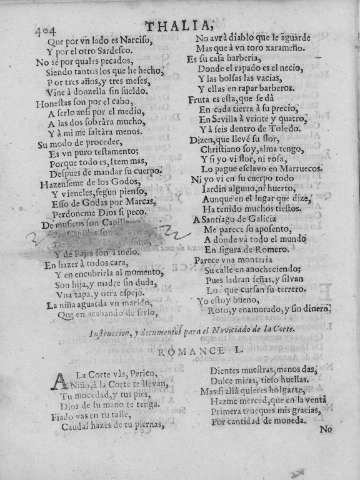 404
THALIA,
Que por vn lado es Narciso,
Y por el otro Sardesco.
No sè por quales pecados,
Siendo tantos los que he hecho,
Por tres años, y tres meses,
Vine à donzella sin sueldo.
Honestas son por el cabo,
A serlo assi por el medio,
A las dos sobràra mucho,
Y à mi me faltàra menos.
Su modo de proceder,
Es vn puro testamento;
Porque todo es, Item mas,
Despues de mandar su cuerpo.
Hazenseme de los Godos,
Y vienèles, segun pienso,
Esso de Godas por Marcas,
Perdoneme Dios si peco.
De
son
Y de Papa son à
En hazer à todos cara,
Y en encubrirla al momento,
Son hija, y madre sin duda,
Vna tapa, y otra espejo.
La niña aguarda vn marido,
Que en acabando de serlo,
No avrà diablo que le aguarde
Mas que à vn toro xarameño.
Es su casa barberia,
Donde el rapado es el necio,
Y las bolsas las vacias,
Y ellas en rapar barberos.
Fruta es esta, que se dà
En cada tierra à su precio,
En Sevilla à veinte y quatro,
Y à seis dentro de Toledo.
Dizen, que llevè su flor,
Christiano soy, alma tengo,
Y si yo vi flor, ni rosa,
Lo pague esclavo en Marruecos.
Ni yo vi en su cuerpo todo
Jardin alguno, ni huerto,
Aunque en el lugar que dize,
Ha tenido muchos tiestos.
A Santiago de Galicia
Me parece su aposento,
A donde và todo el mundo
En figura de Romero.
Parece vna monteria
Su calle en anocheciendo;
Pues ladran señas, y silvan
Los que cursan su terrero.
Yo estoy bueno,
Roto, y enamorado, y sin dinero.
Instruccion, y documentos para el Noviciado de la Corte.
ROMANCE L.
A La Corte vàs, Perico,
Niño, à la Corte te llevan,
Tu mocedad, y tus pies,
Dios de su mano te tenga.
Fiado vas en tu talle,
Caudal hazes de tu piernas,
Dientes muestras, manos das,
Dulce miras, tieso huellas.
Mas si allà quieres holgarte,
Hazme merced, que en la venta
Primera trueques mis gracias,
Por cantidad de moneda.
No